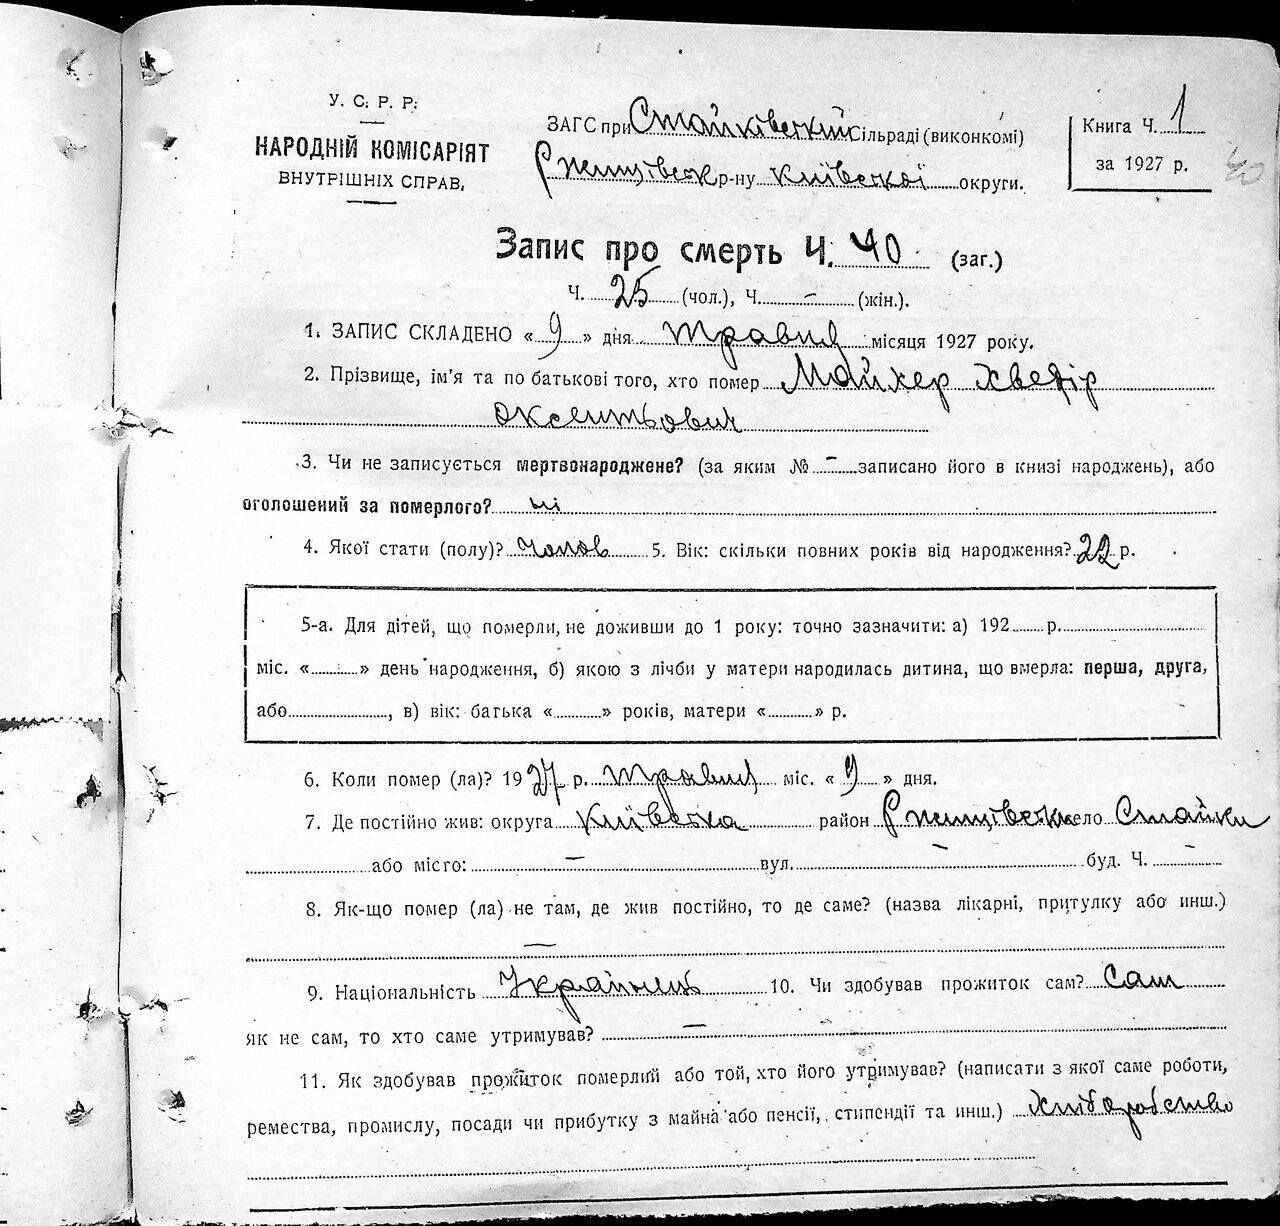 У. С. Р. Р.
НАРОДНІЙ КОМІСАРІЯТ
ВНУТРІШНІХ СПРАВ,
ЗАГС при Стайківський Сільраді (виконкомі)
Ржищівськ р-ну Київської округи.
Книга Ч. 1
за 1927 р.
40
Запис про смерть Ч. 40 (заг.)
Ч. 25 (чол.), Ч. – (жін.).
1. ЗАПИС СКЛАДЕНО « 9 » дня травня місяця 1927 року.
2. Прізвище, ім'я та по батькові того, хто помер Майхер Хведір
Оксентьович
3. Чи не записується мертвонароджене? (за яким № – записано його в книзі народжень), або
оголошений за померлого? ні
4. Якої стати (полу)? Чолов 5. Вік: скільки повних років від народження? 22 р.
5-а. Для дітей, що померли, не доживши до 1 року: точно зазначити: а) 192 р.
міс. « » день народження, б) якою з лічби у матери народилась дитина, що вмерла: перша, друга,
або , в) вік: батька « » років, матери « » р.
6. Коли помер (ла)? 1927 р. травня міс. « 9 » дня.
7. Де постійно жив: округа Київська район Ржищівськ село Стайки
або місто: – вул. – буд. Ч. –
8. Як-що помер (ла) не там, де жив постійно, то де саме? (назва лікарні, притулку або инш.)
—
9. Національність Українець 10. Чи здобував прожиток сам? Сам
як не сам, то хто саме утримував? —
11. Як здобував прожиток померлий або той, хто його утримував? (написати з якої саме роботи,
ремества, промислу, посади чи прибутку з майна або пенсії, стипендії та инш.) Хліборобство